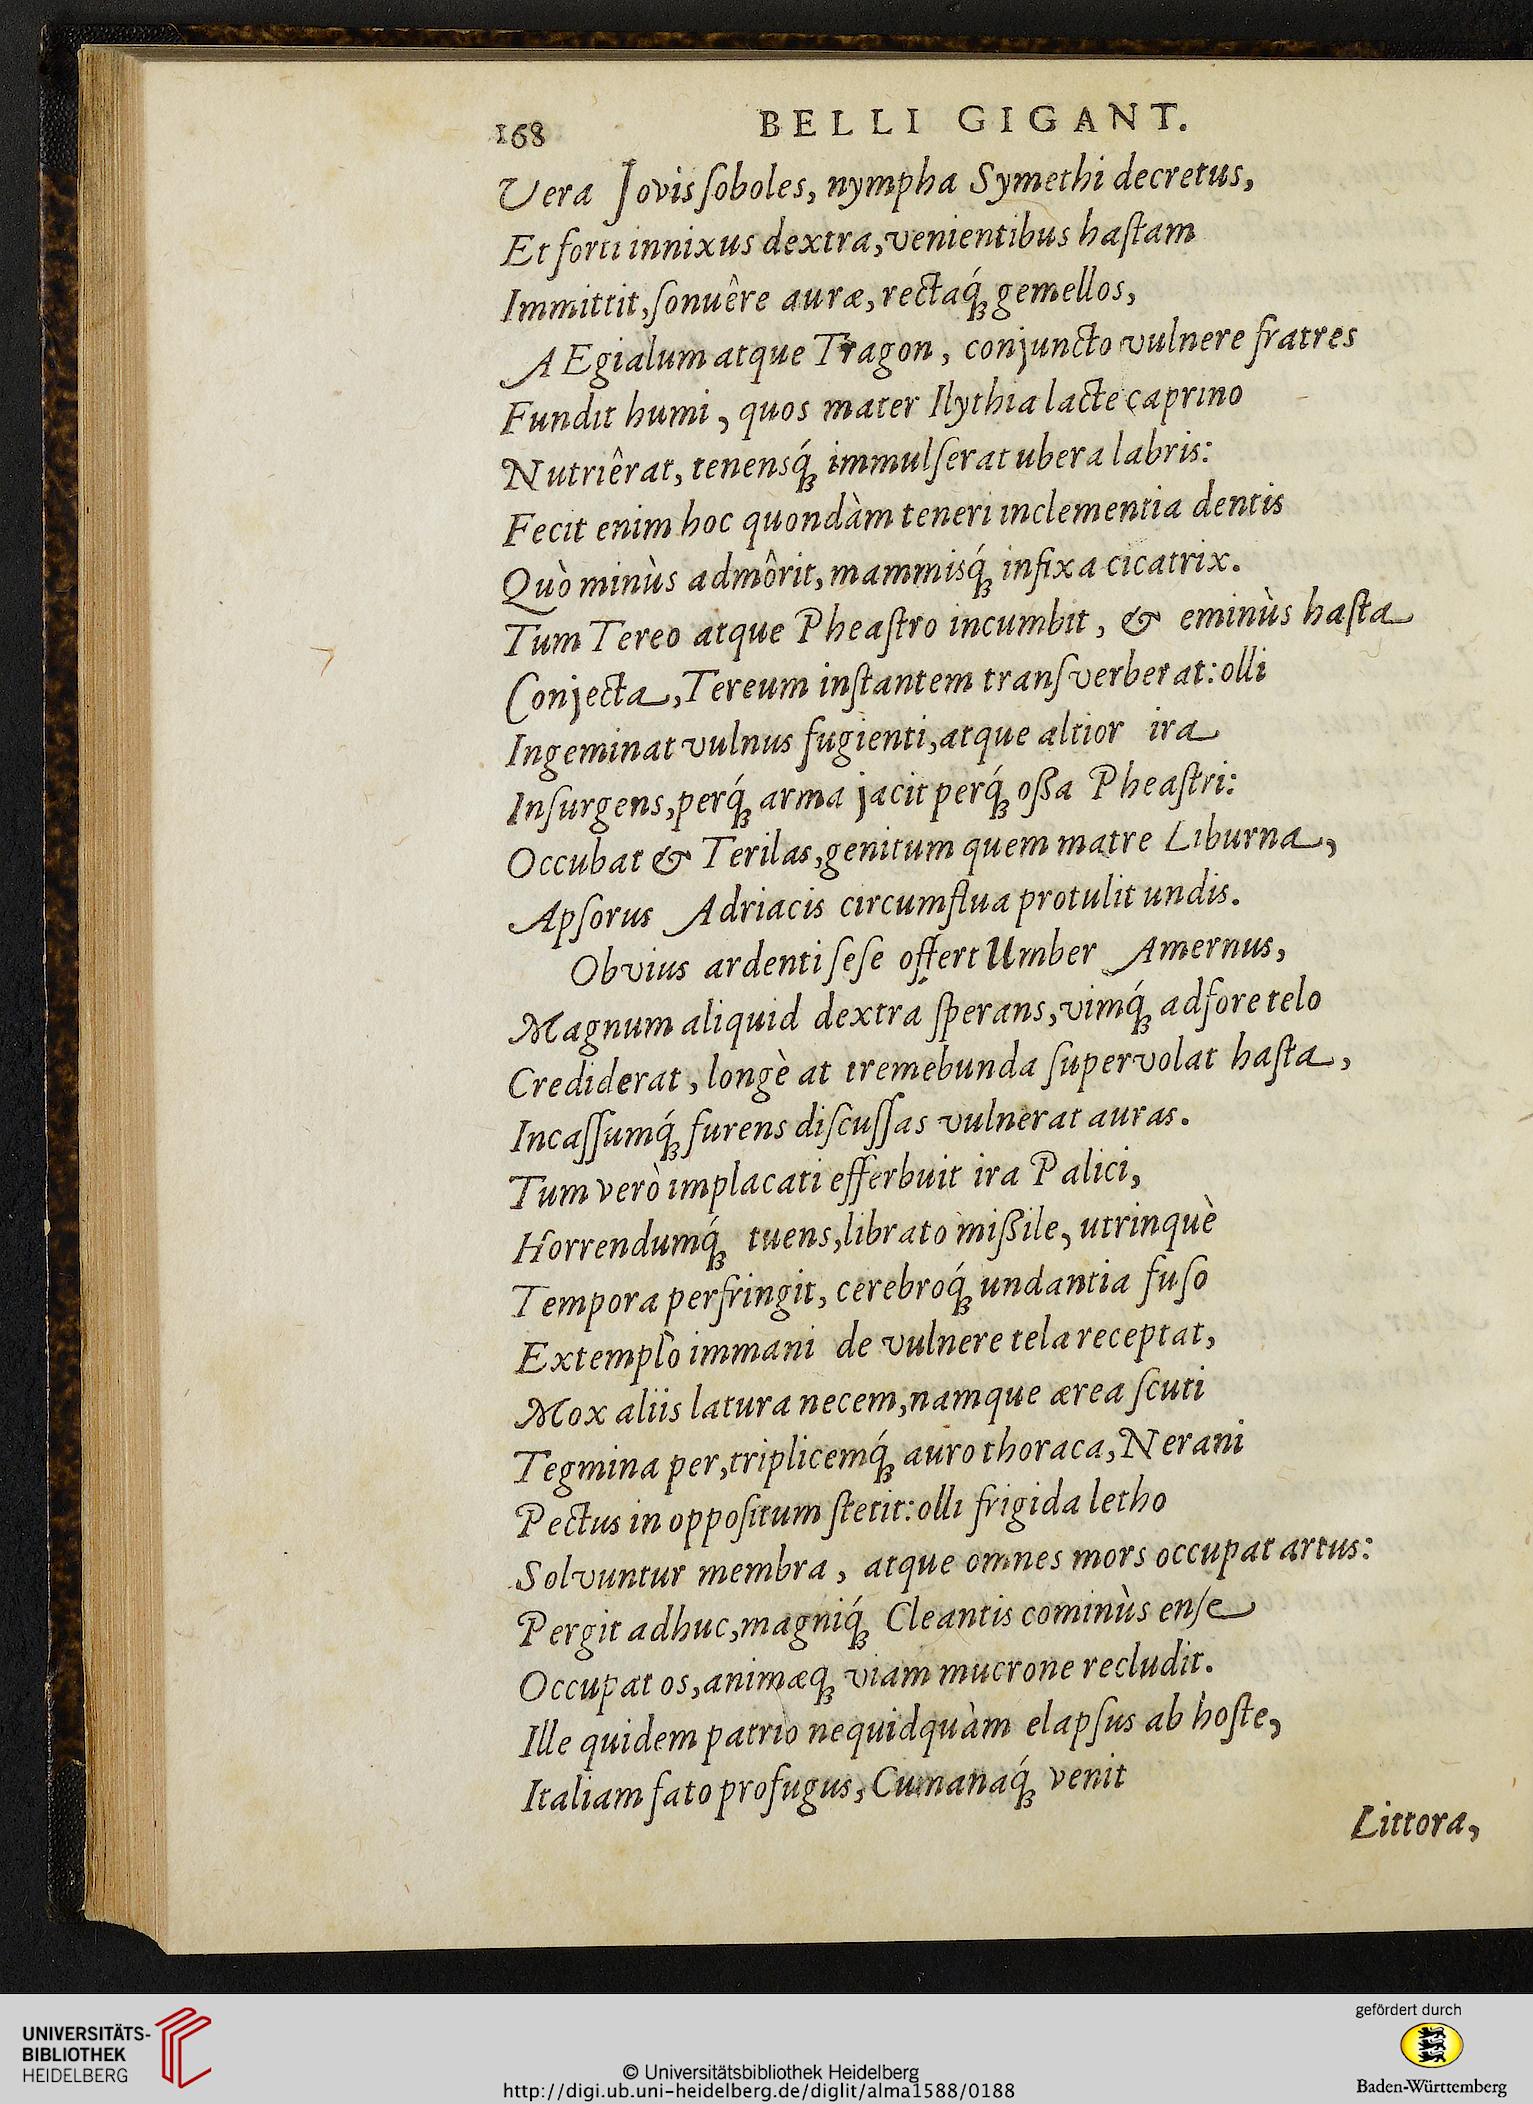 168 BELLI GIGANT.
Vera Jovis ſoboles, nympha Symethi decretus,
Et forti innixus dextra, venientibus haſtam
Immittit, ſonuêre auræ, rectaq́ꝫ gemellos,
AEgialum atque Tragon, conjuncto vulnere fratres
Fundit humi, quos mater Ilythia lacte caprino
Nutriêrat, tenensq́ꝫ immulſerat ubera labris:
Fecit enim hoc quondàm teneri inclementia dentis
Quò minùs admôrit, mammisq́ꝫ infixa cicatrix.
Tum Tereo atque Pheaſtro incumbit, & eminùs haſta
Conjecta, Tereum inſtantem tranſverberat: olli
Ingeminat vulnus fugienti, atque altior ira
Inſurgens, perq́ꝫ arma jacit perq́ꝫ oßa Pheaſtri:
Occubat & Terilas, genitum quem matre Liburna,
Apſorus Adriacis circumflua protulit undis.
Obvius ardenti ſeſe offert Umber Amernus,
Magnum aliquid dextra ſperans, vimq́ꝫ adfore telo
Crediderat, longè at tremebunda ſupervolat haſta,
Incaſſumq́ꝫ furens diſcuſſas vulnerat auras.
Tum verò implacati efferbuit ira Palici,
Horrendumq́ꝫ tuens, librato mißile, utrinquè
Tempora perfringit, cerebroq́ꝫ undantia fuſo
Extemplò immani de vulnere tela receptat,
Mox aliis latura necem, namque ærea ſcuti
Tegmina per, triplicemq́ꝫ auro thoraca, Nerani
Pectus in oppoſitum ſtetit: olli frigida letho
Solvuntur membra, atque omnes mors occupat artus:
Pergit adhuc, magniq́ꝫ Cleantis cominùs enſe
Occupat os, animæqꝫ viam mucrone recludit.
Ille quidem patrio nequidquàm elapſus ab hoſte,
Italiam fato profugus, Cumanaq́ꝫ venit
Littora,
UNIVERSITÄTS-
BIBLIOTHEK
HEIDELBERG
© Universitätsbibliothek Heidelberg
http://digi.ub.uni-heidelberg.de/diglit/alma1588/0188
gefördert durch
Baden-Württemberg